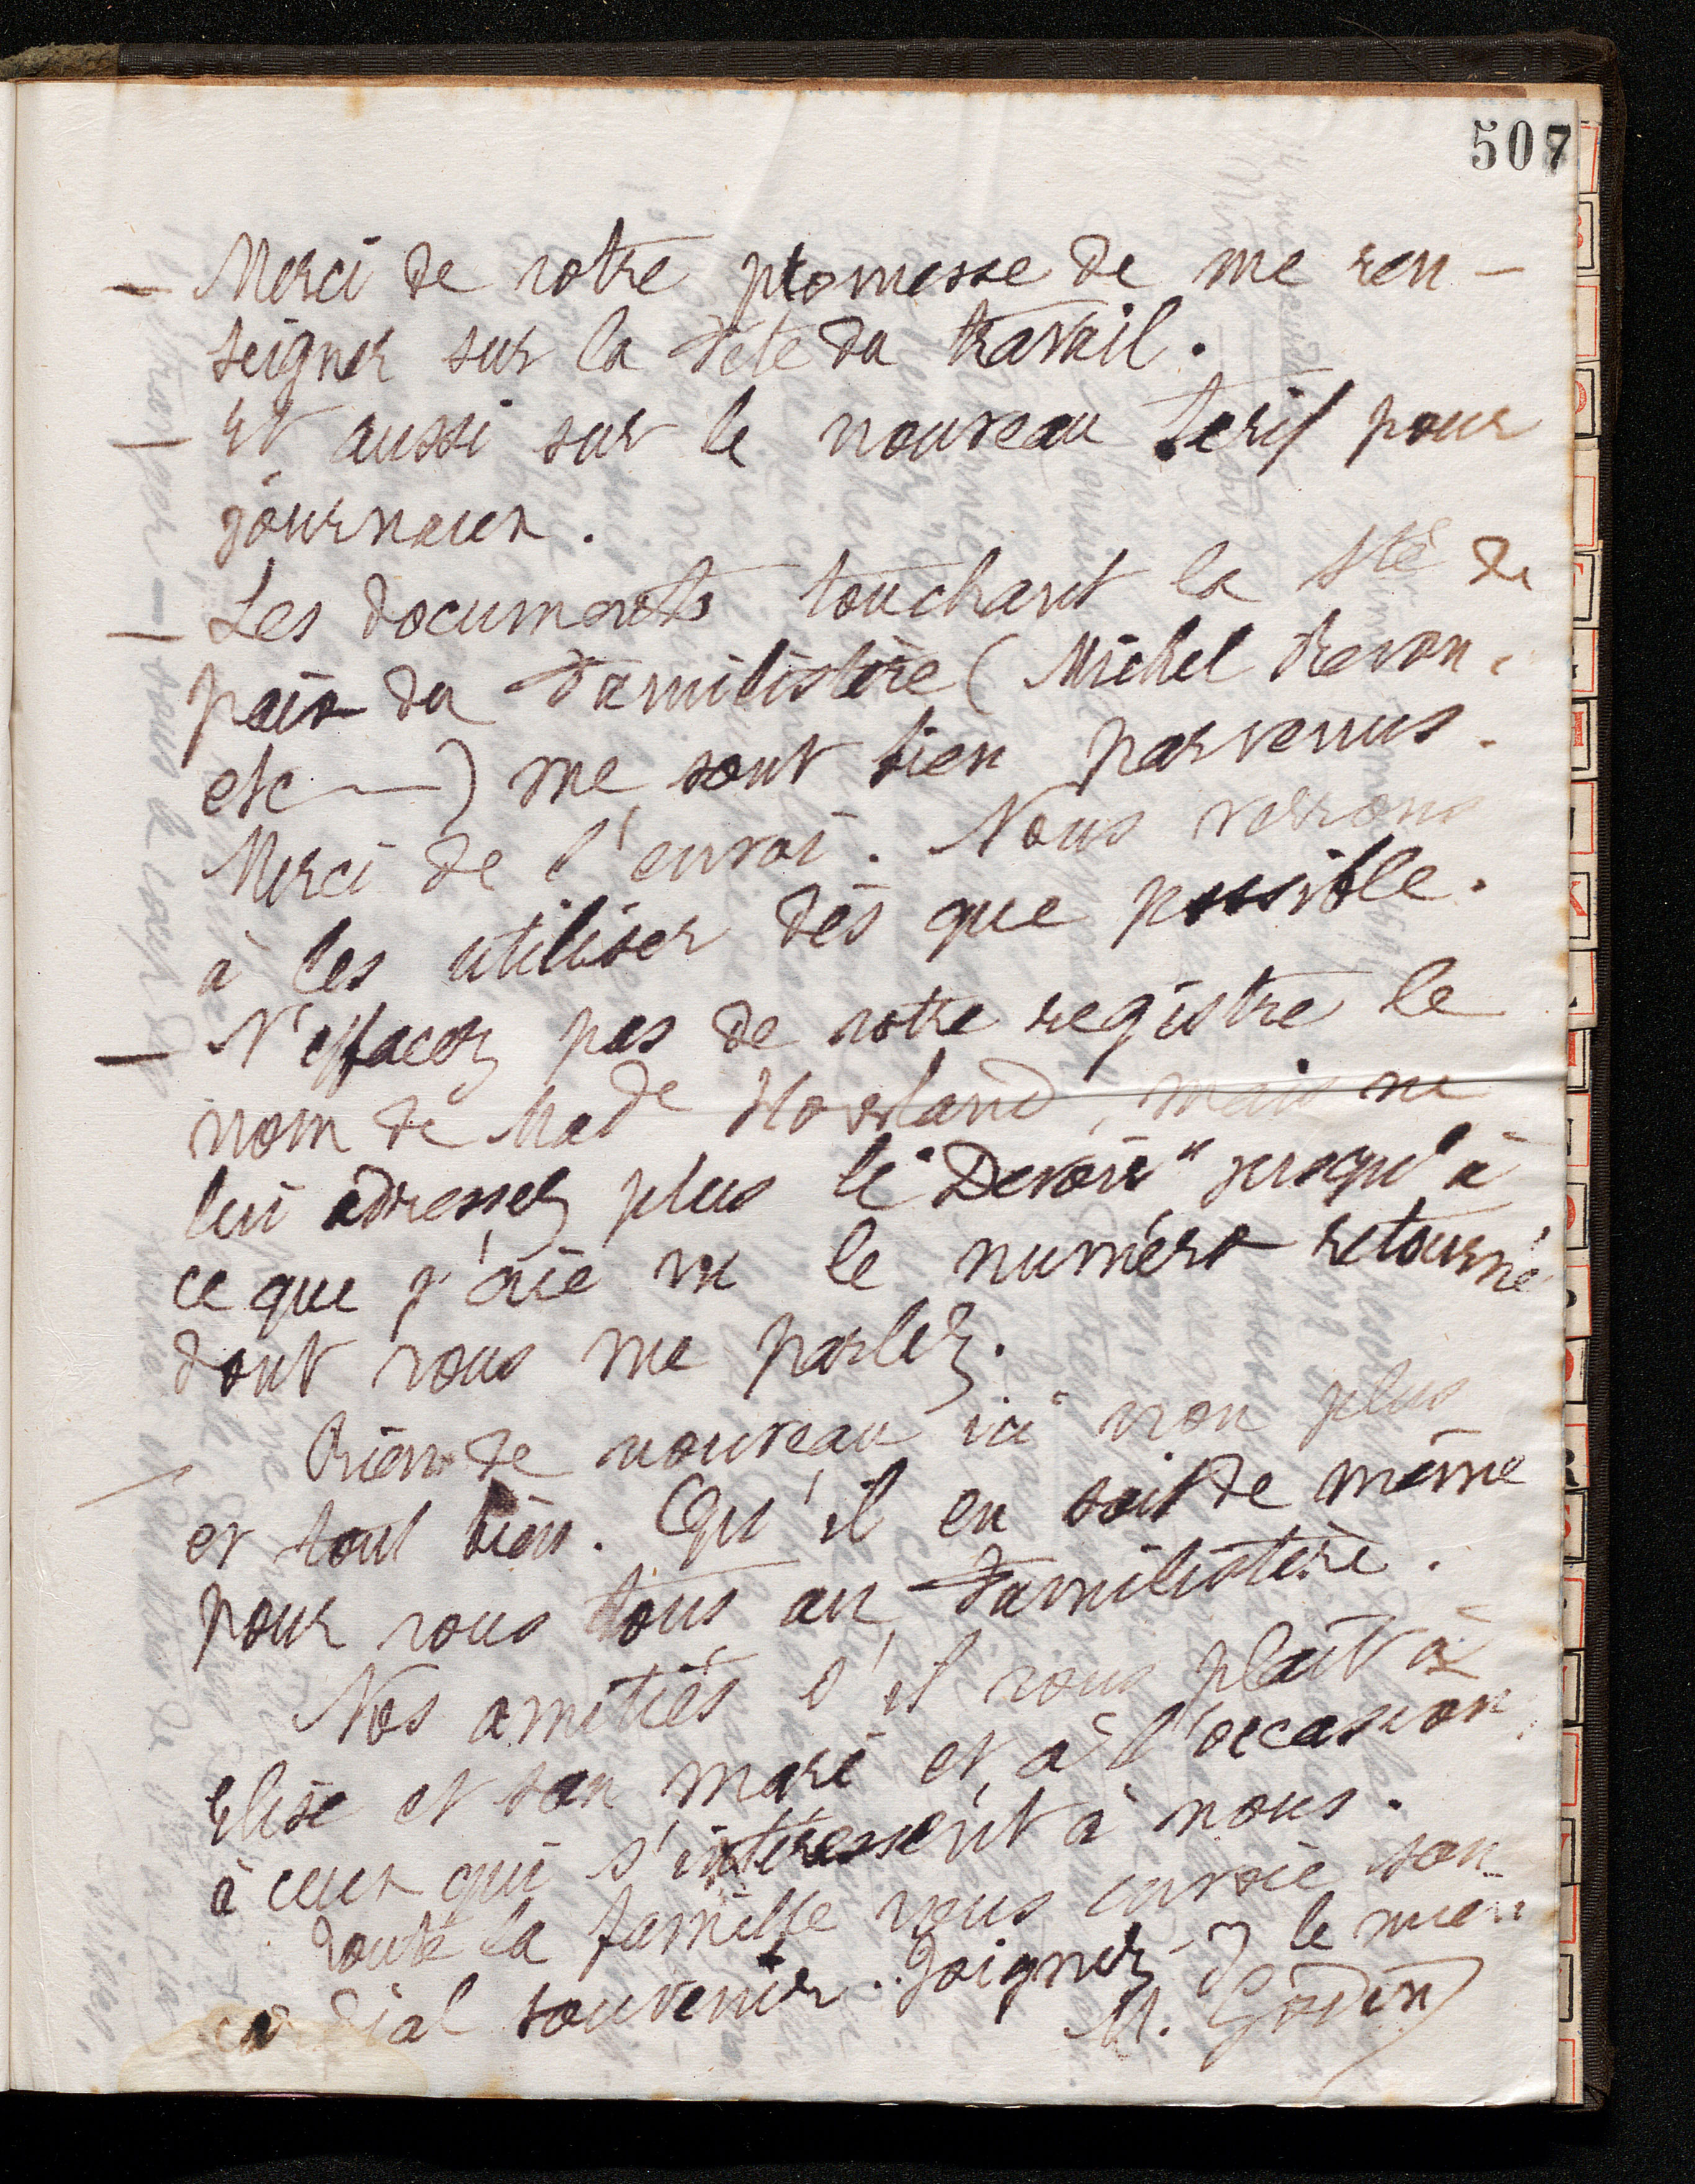 507
— Merci de votre promesse de me ren-
seigner sur la Fête du travail.
— Et aussi sur le nouveau tarif pour
journaux.
— Les documents touchant la Sté de
paix du Familistère (Michel Revon,
etc —) me sont bien parvenus.
Merci de l'envoi. Nous verrons
à les utiliser dès que possible.
— N'effacez pas de votre registre le
nom de Made Howland, mais ne
lui adressez plus le "Devoir" jusqu'à
ce que j'aie vu le numéro retourné
dont vous me parlez.
— Rien de nouveau ici non plus
et tout bien. Qu'il en soit de même
pour vous tous au Familistère.
Nos amitiés s'il vous plaît à
Elise et son mari et à l'occasion
à ceux qui s'intéressent à nous.
Toute la famille vous envoie son
cordial souvenir. Joignez-y le mien
M. Godin